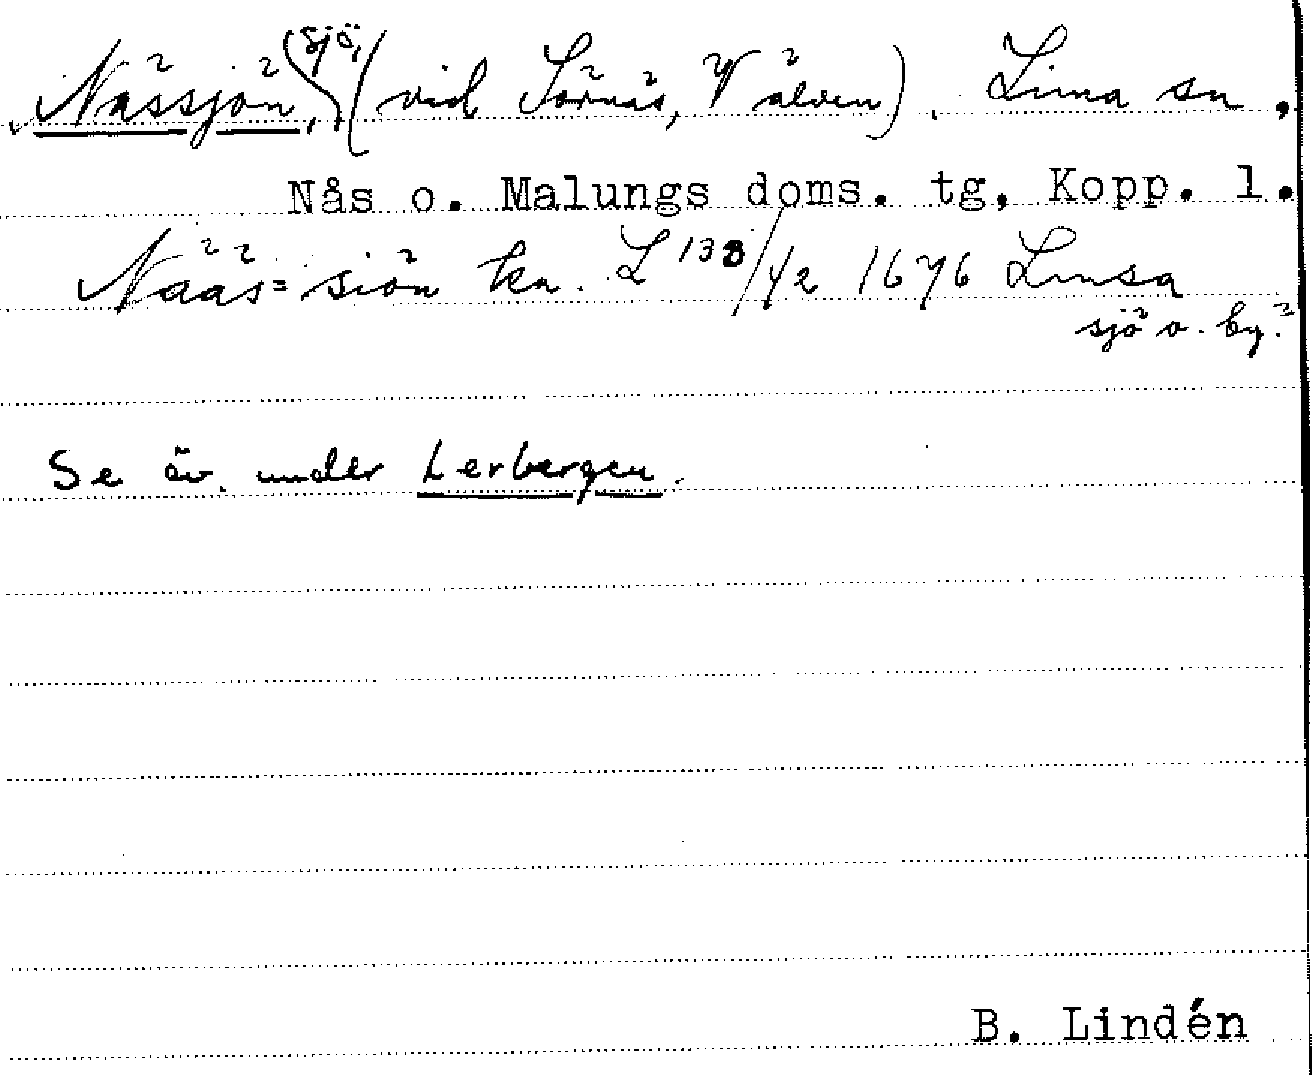 Nässjön, sjö, (vid Sörnäs, V älven), Lima sn,
Nås o. Malungs doms. tg, Kopp. l.
Nääs= siön kn. L 138/42 1676 Limsa
sjö o. by?
Se äv. under Lerbergen.
B. Lindén